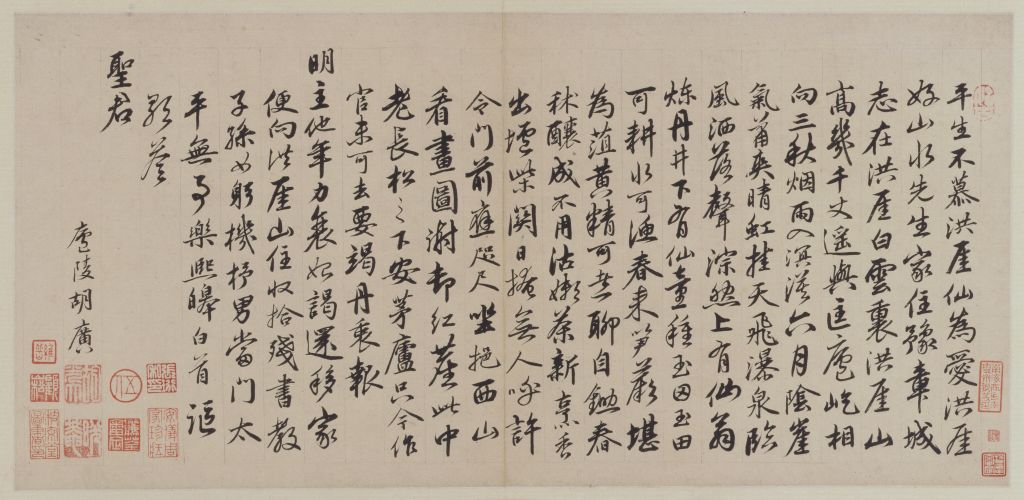 平生不慕洪厓仙為愛洪厓
好山水先生家住豫章城
志在洪厓白雲裏洪厓山
高幾千丈遥與匡廬屹相
向三秋烟雨入溟濛六月陰崖
氣蕭爽晴虹挂天飛瀑泉臨
風洒落聲淙然上有仙翁
煉丹井下有仙童種玉田玉田
可耕水可漁春来笋蕨堪
為葅黄精可煮聊自鋤春
秫釀成不用沽嫩茶新 香
出壚柴關日掩無人呼許
令門前應咫尺坐挹西山
看畫圖謝却紅塵此中
老長松之下安茅廬只今作
官未可去要竭丹衷報
明主他年力衰始謁還移家
便向洪厓山住收拾殘書教
子孫女躬機杼男當門太
平無事樂熙皞白首謳
歌答
聖君
廬陵胡廣